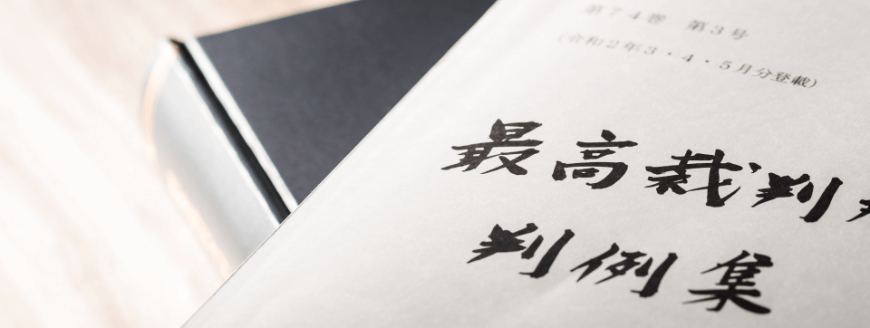 第74巻 第3号
(令和2年3・4・5月分登載)
最高裁判
判例集